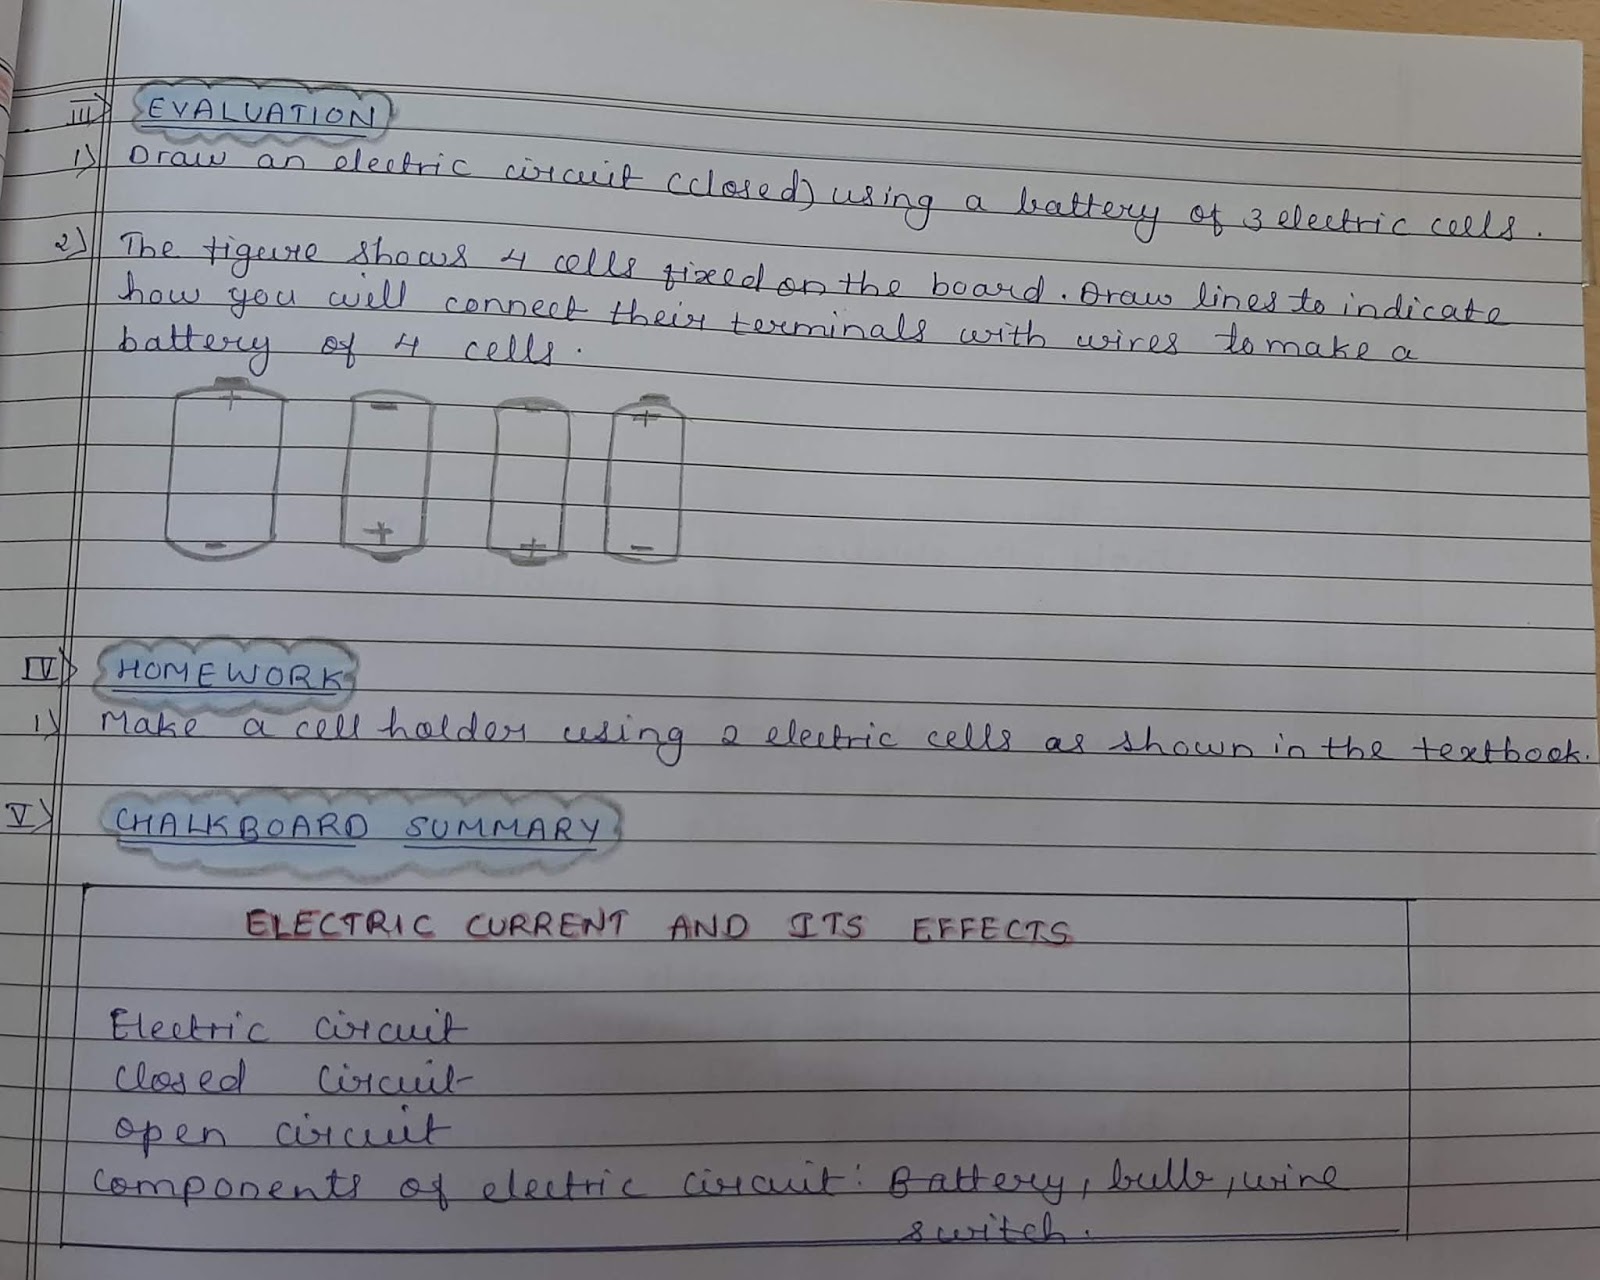 III) EVALUATION
1) Draw an electric circuit (closed) using a battery of 3 electric cells.
2) The figure shows 4 cells fixed on the board. Draw lines to indicate
how you will connect their terminals with wires to make a
battery of 4 cells.
+ - - +
- + + -
IV) HOMEWORK
1) Make a cell holder using 2 electric cells as shown in the textbook.
V) CHALKBOARD SUMMARY
ELECTRIC CURRENT AND ITS EFFECTS
Electric circuit
closed circuit
open circuit
components of electric circuit: Battery, bulb, wire
switch.